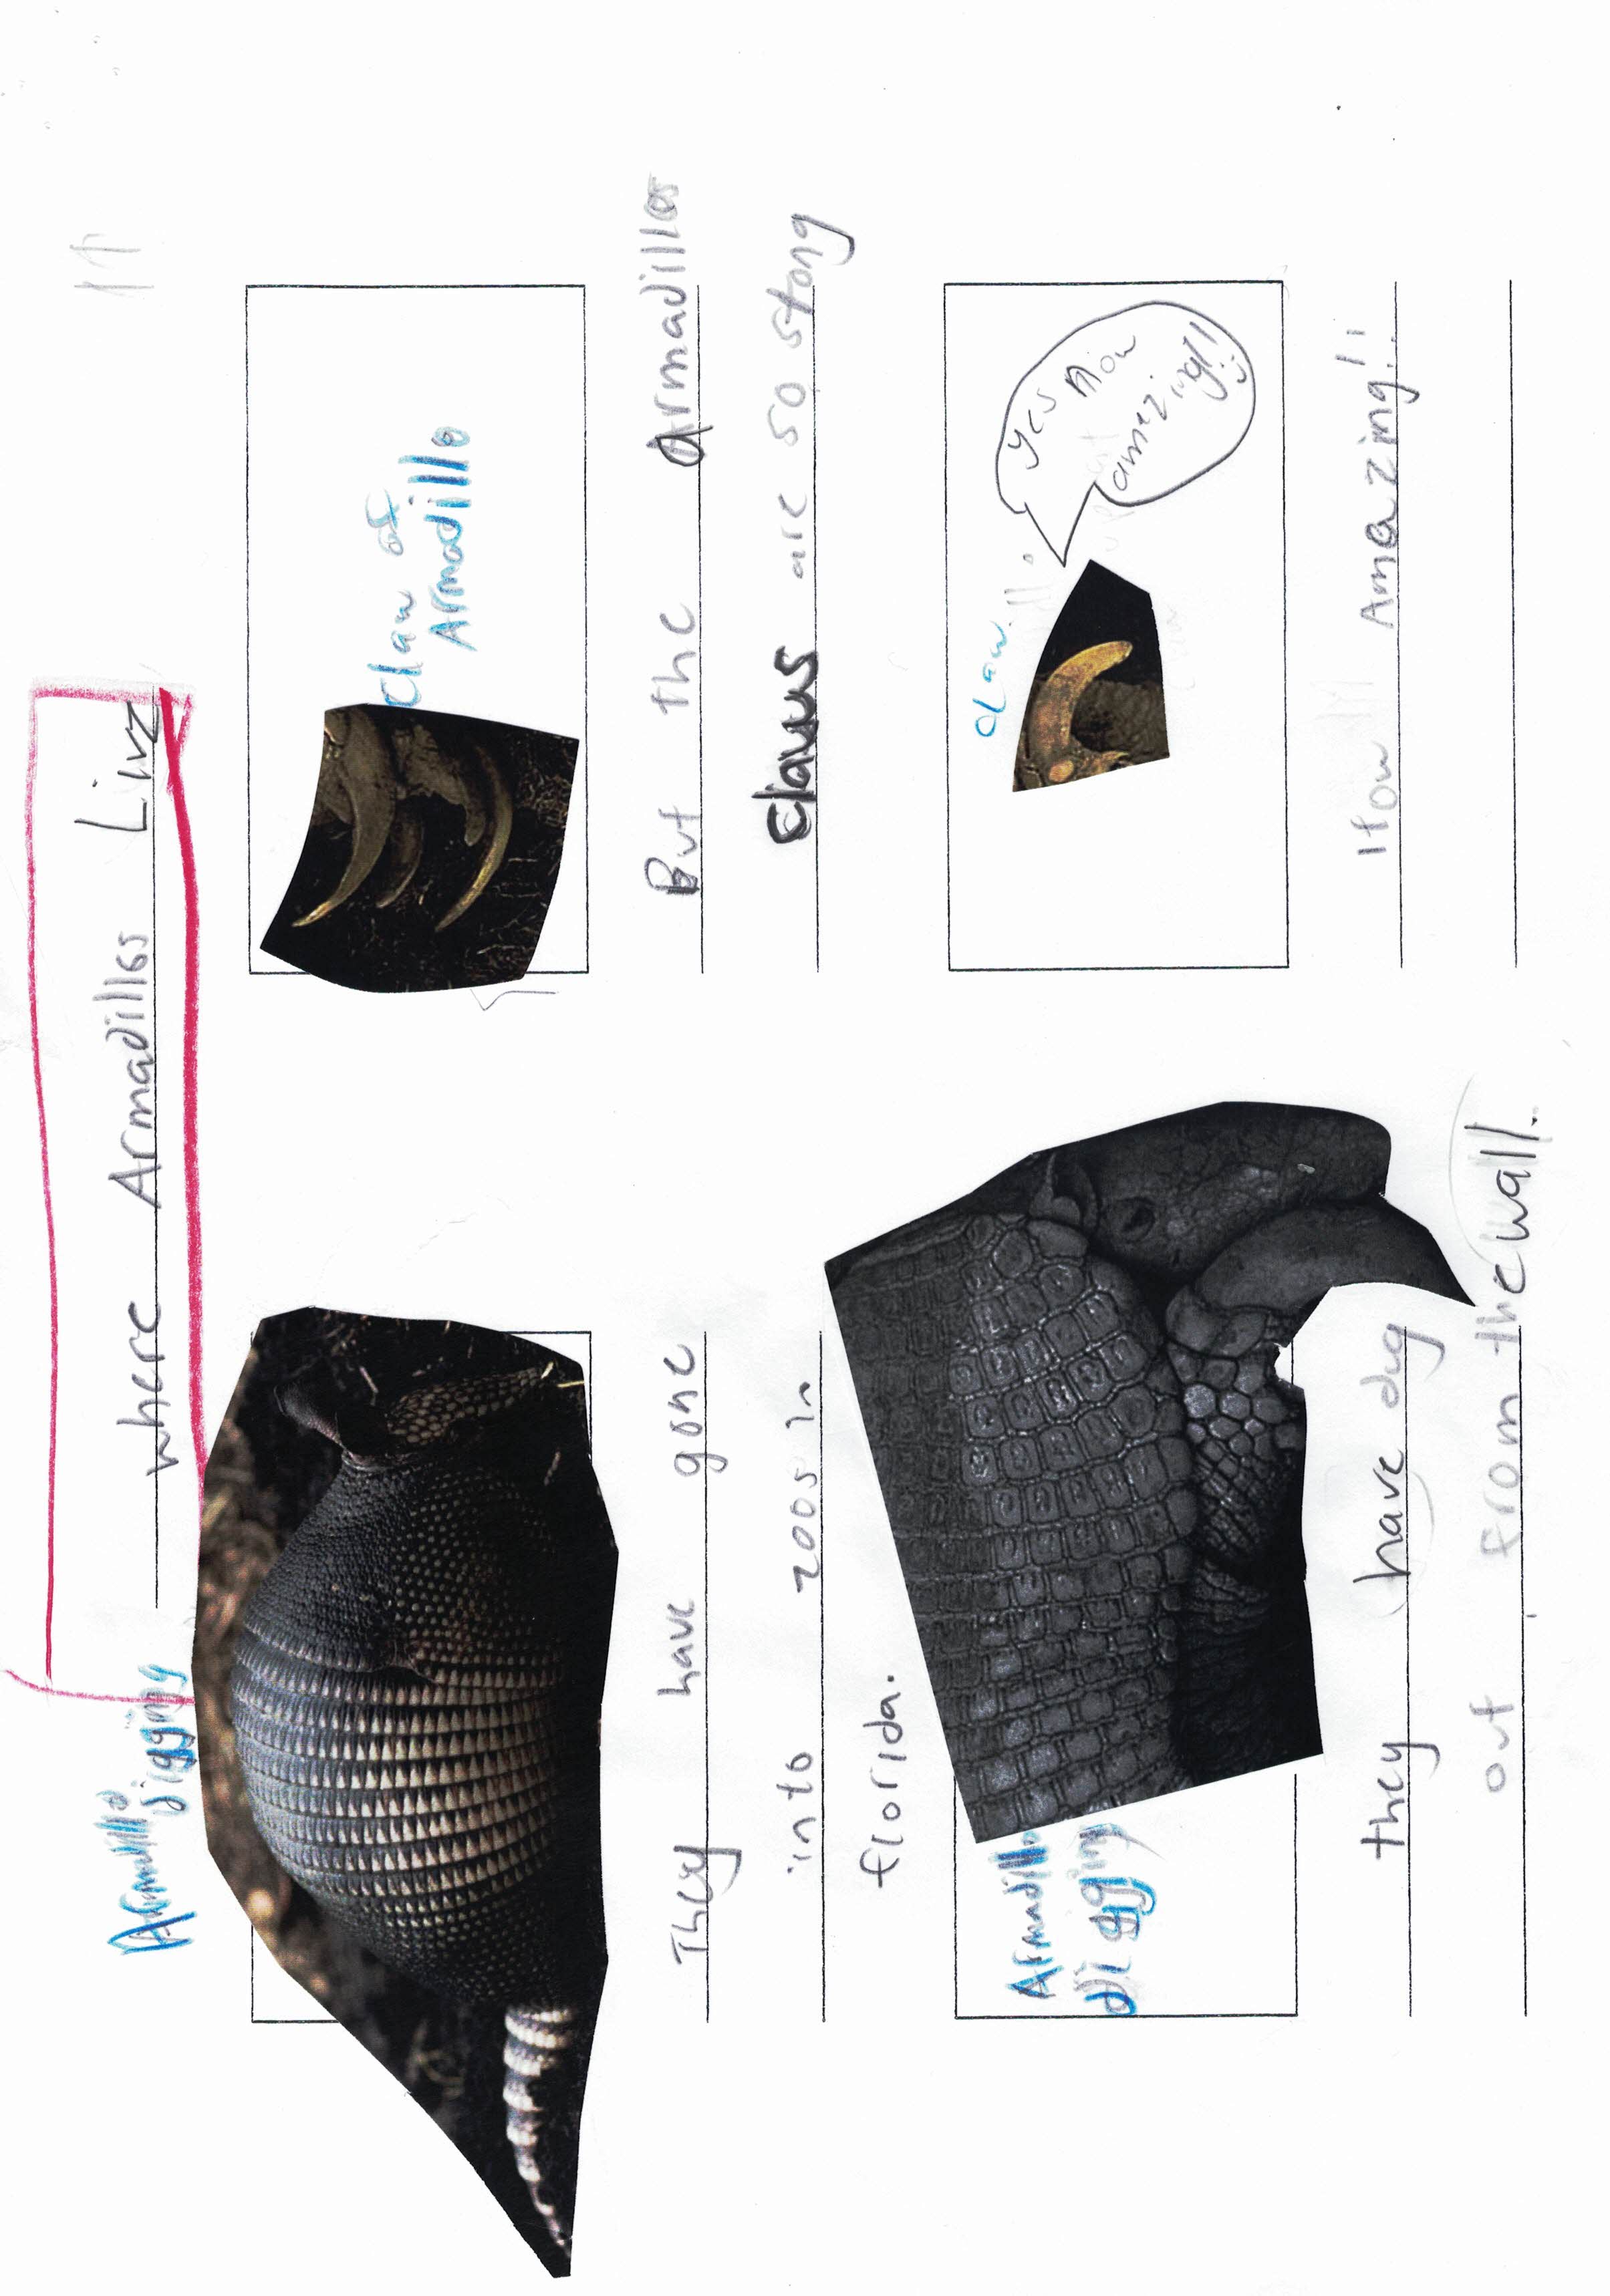 11
where Armadillos Live
Armadillo
digging
They have gone
into zoos in
florida.
Claw of
Armadillo
But the Armadillos
Claws are so stong
Armadillo
digging
they have dug
out from the wall.
CLaw
yes How
amezing!!
How Amazing!!